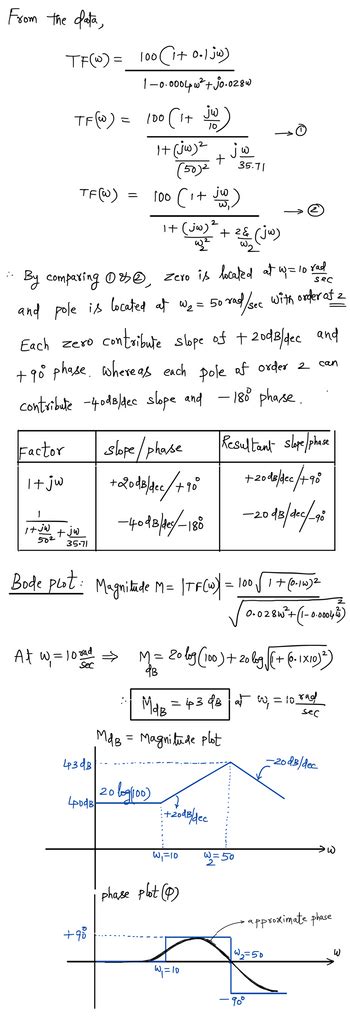 From the data,
TF(ω) = 100(1+0.1jω) / 1-0.0004ω²+j0.028ω
TF(ω) = 100(1+ jω/10) / 1+ (jω)²/(50)² + jω/35.71 → ①
TF(ω) = 100(1+ jω/ω₁) / 1+ (jω)²/ω₂² + 2ξ/ω₂ (jω) → ②
∴ By comparing ① & ②, zero is located at ω₁=10 rad/sec
and pole is located at ω₂ = 50 rad/sec with order of 2
Each zero contribute slope of +20dB/dec and
+90° phase. whereas each pole of order 2 can
contribute -40dB/dec slope and -180° phase.
Factor slope/phase Resultant slope/phase
1+jω +20dB/dec/+90° +20dB/dec/+90°
1 / 1+ jω/50² + jω/35.71 -40dB/dec/-180° -20dB/dec/-90°
Bode plot: Magnitude M = |TF(ω)| = 100√1+(0.1ω)² / √0.028ω²+(1-0.0004ω²)²
At ω₁=10 rad/sec ⇒ M dB = 20log(100)+20log√1+(0.1×10)²
∴ M dB = 43 dB at ω₁ = 10 rad/sec
M dB = Magnitude plot
43dB
-20dB/dec
20log(100)
40dB
+20dB/dec
ω₁=10 ω₂=50 ω
phase plot(ϕ)
approximate phase
+90°
ω
ω₁=10
ω₂=50
-90°